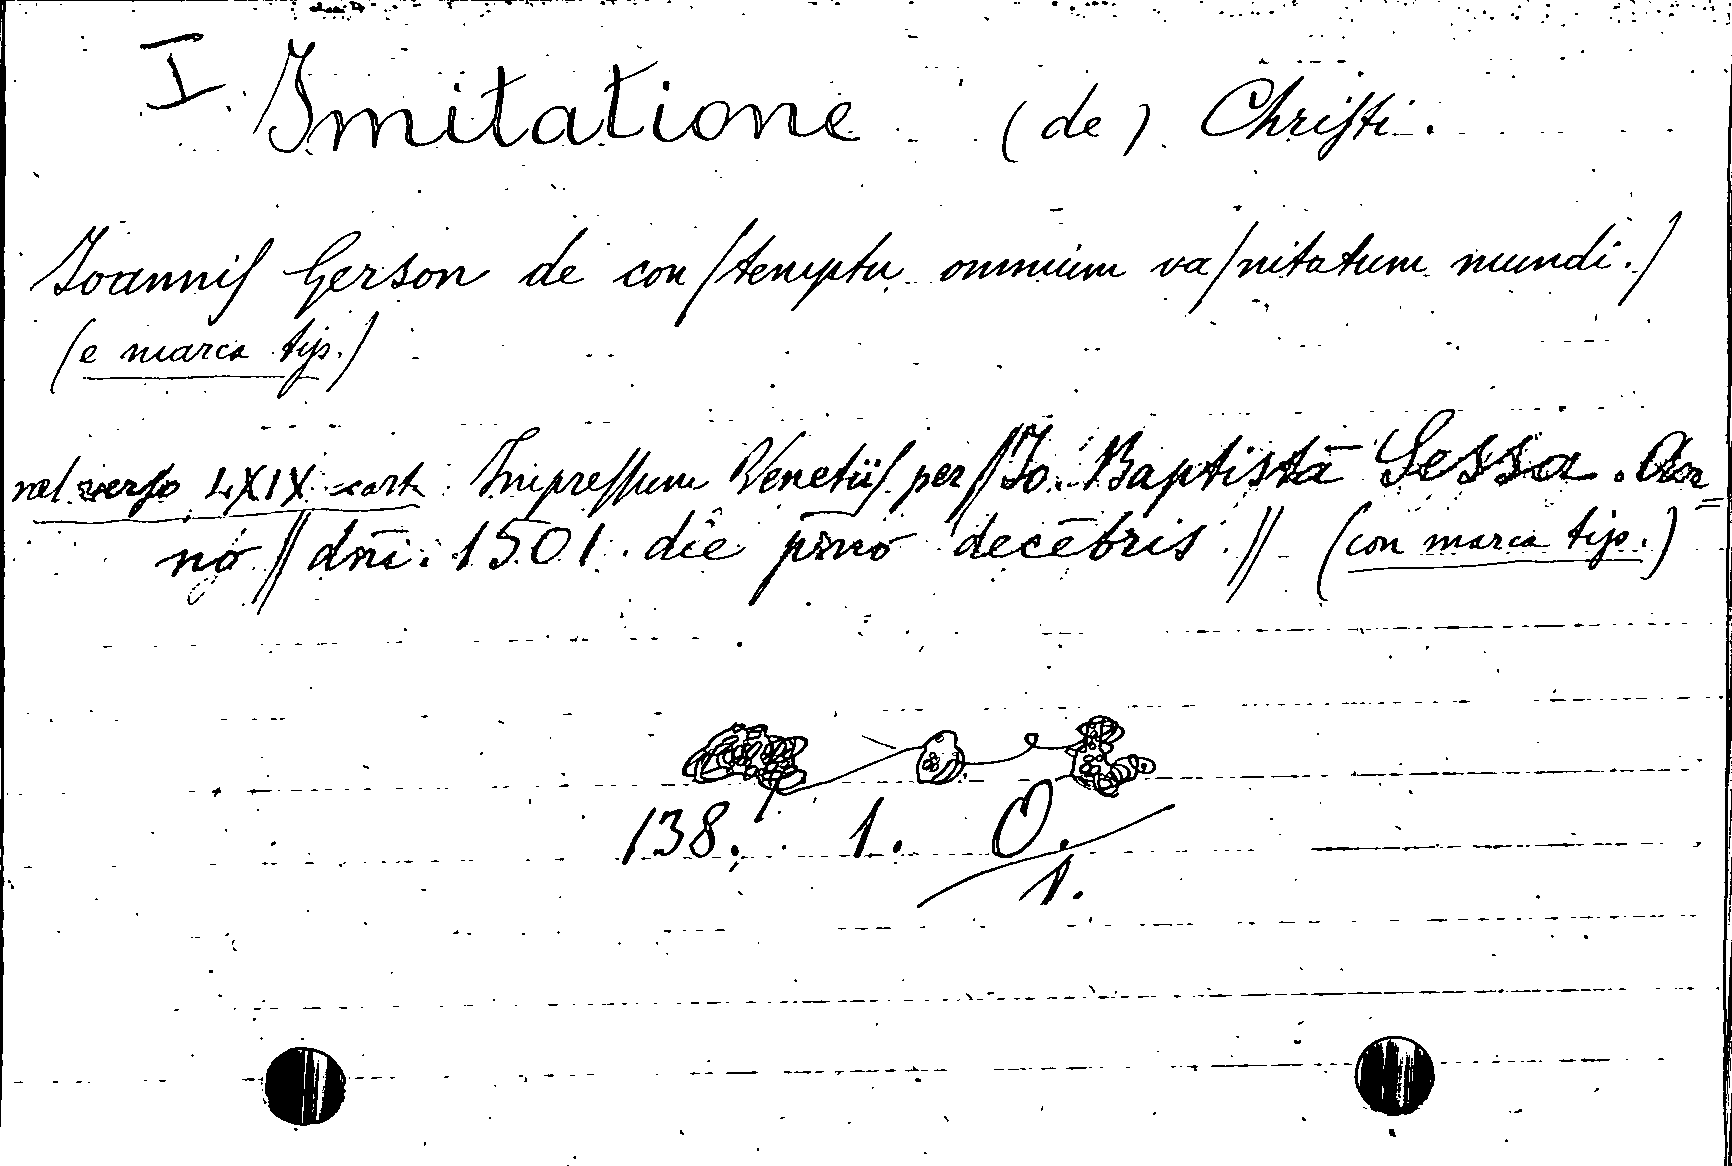 I. Imitatione (de) Christi.
Joannis Gerson de con/temptu omnium va/nitatum mundi./
(e marca tip.)
nel verso LXIX cart. Impressum Venetiis per // Jo. Baptistā Sessa. An=
no // dn̄i. 1501. die p̄mo decēbris. // (con marca tip.)
138. 1. O.
1.